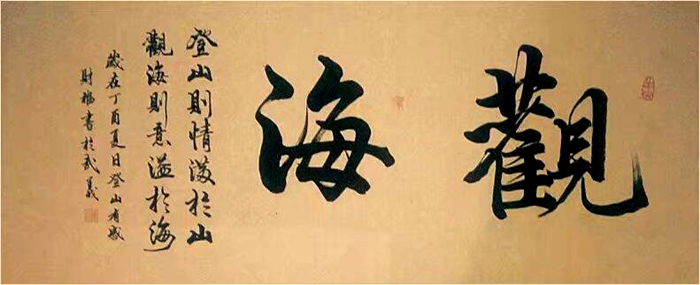 觀海
登山則情滿於山
觀海則意溢於海
歲在丁酉夏日登山有感
財楊書於武義